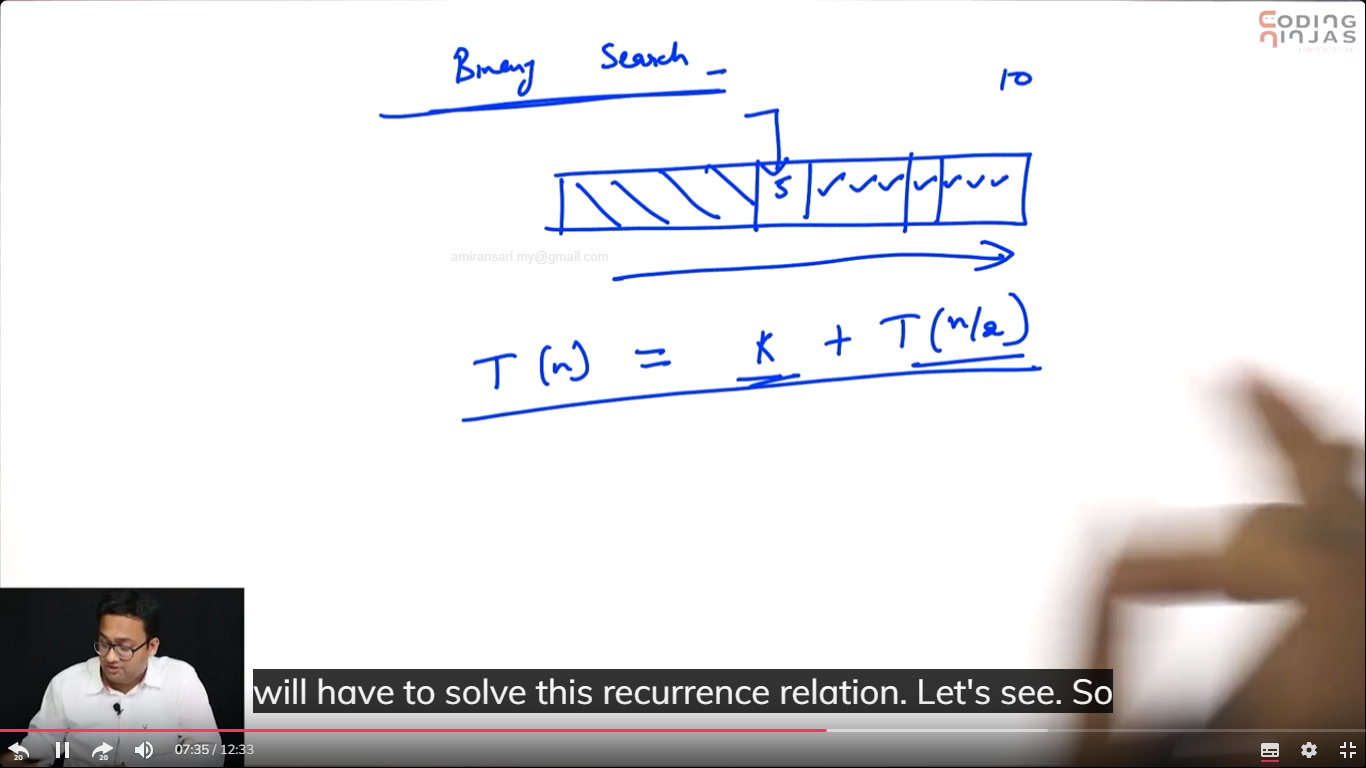 CODING
NINJAS
Binary Search
10
5
amiransari.my@gmail.com
T(n) = K + T(n/2)
will have to solve this recurrence relation. Let's see. So
20
20
07:35 / 12:33